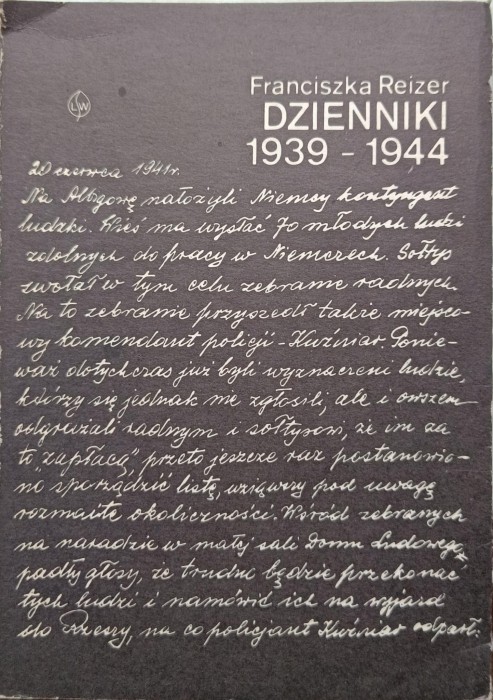 Franciszka Reizer
DZIENNIKI
1939 - 1944
LSW
20 czerwca 1941r.
Na Albigowę nałożyli Niemcy kontyngent
ludzki. Wieś ma wysłać 70 młodych ludzi
zdolnych do pracy w Niemczech. Sołtys
zwołał w tym celu zebranie radnych.
Na to zebranie przyszedł także miejsco-
wy komendant policji - Kuźniar. Ponie-
waż dotychczas już byli wyznaczeni ludzie,
którzy się jednak nie zgłosili, ale i owszem
odgrażali radnym i sołtysowi, że im za
to "zapłacą", przeto jeszcze raz postanowio-
no sporządzić listę, wziąwszy pod uwagę
rozmaite okoliczności. Wśród zebranych
na naradzie w małej sali Domu Ludowego,
padły głosy, że trudno będzie przekonać
tych ludzi i namówić ich na wyjazd
do Rzeszy, na co policjant Kuźniar odparł: